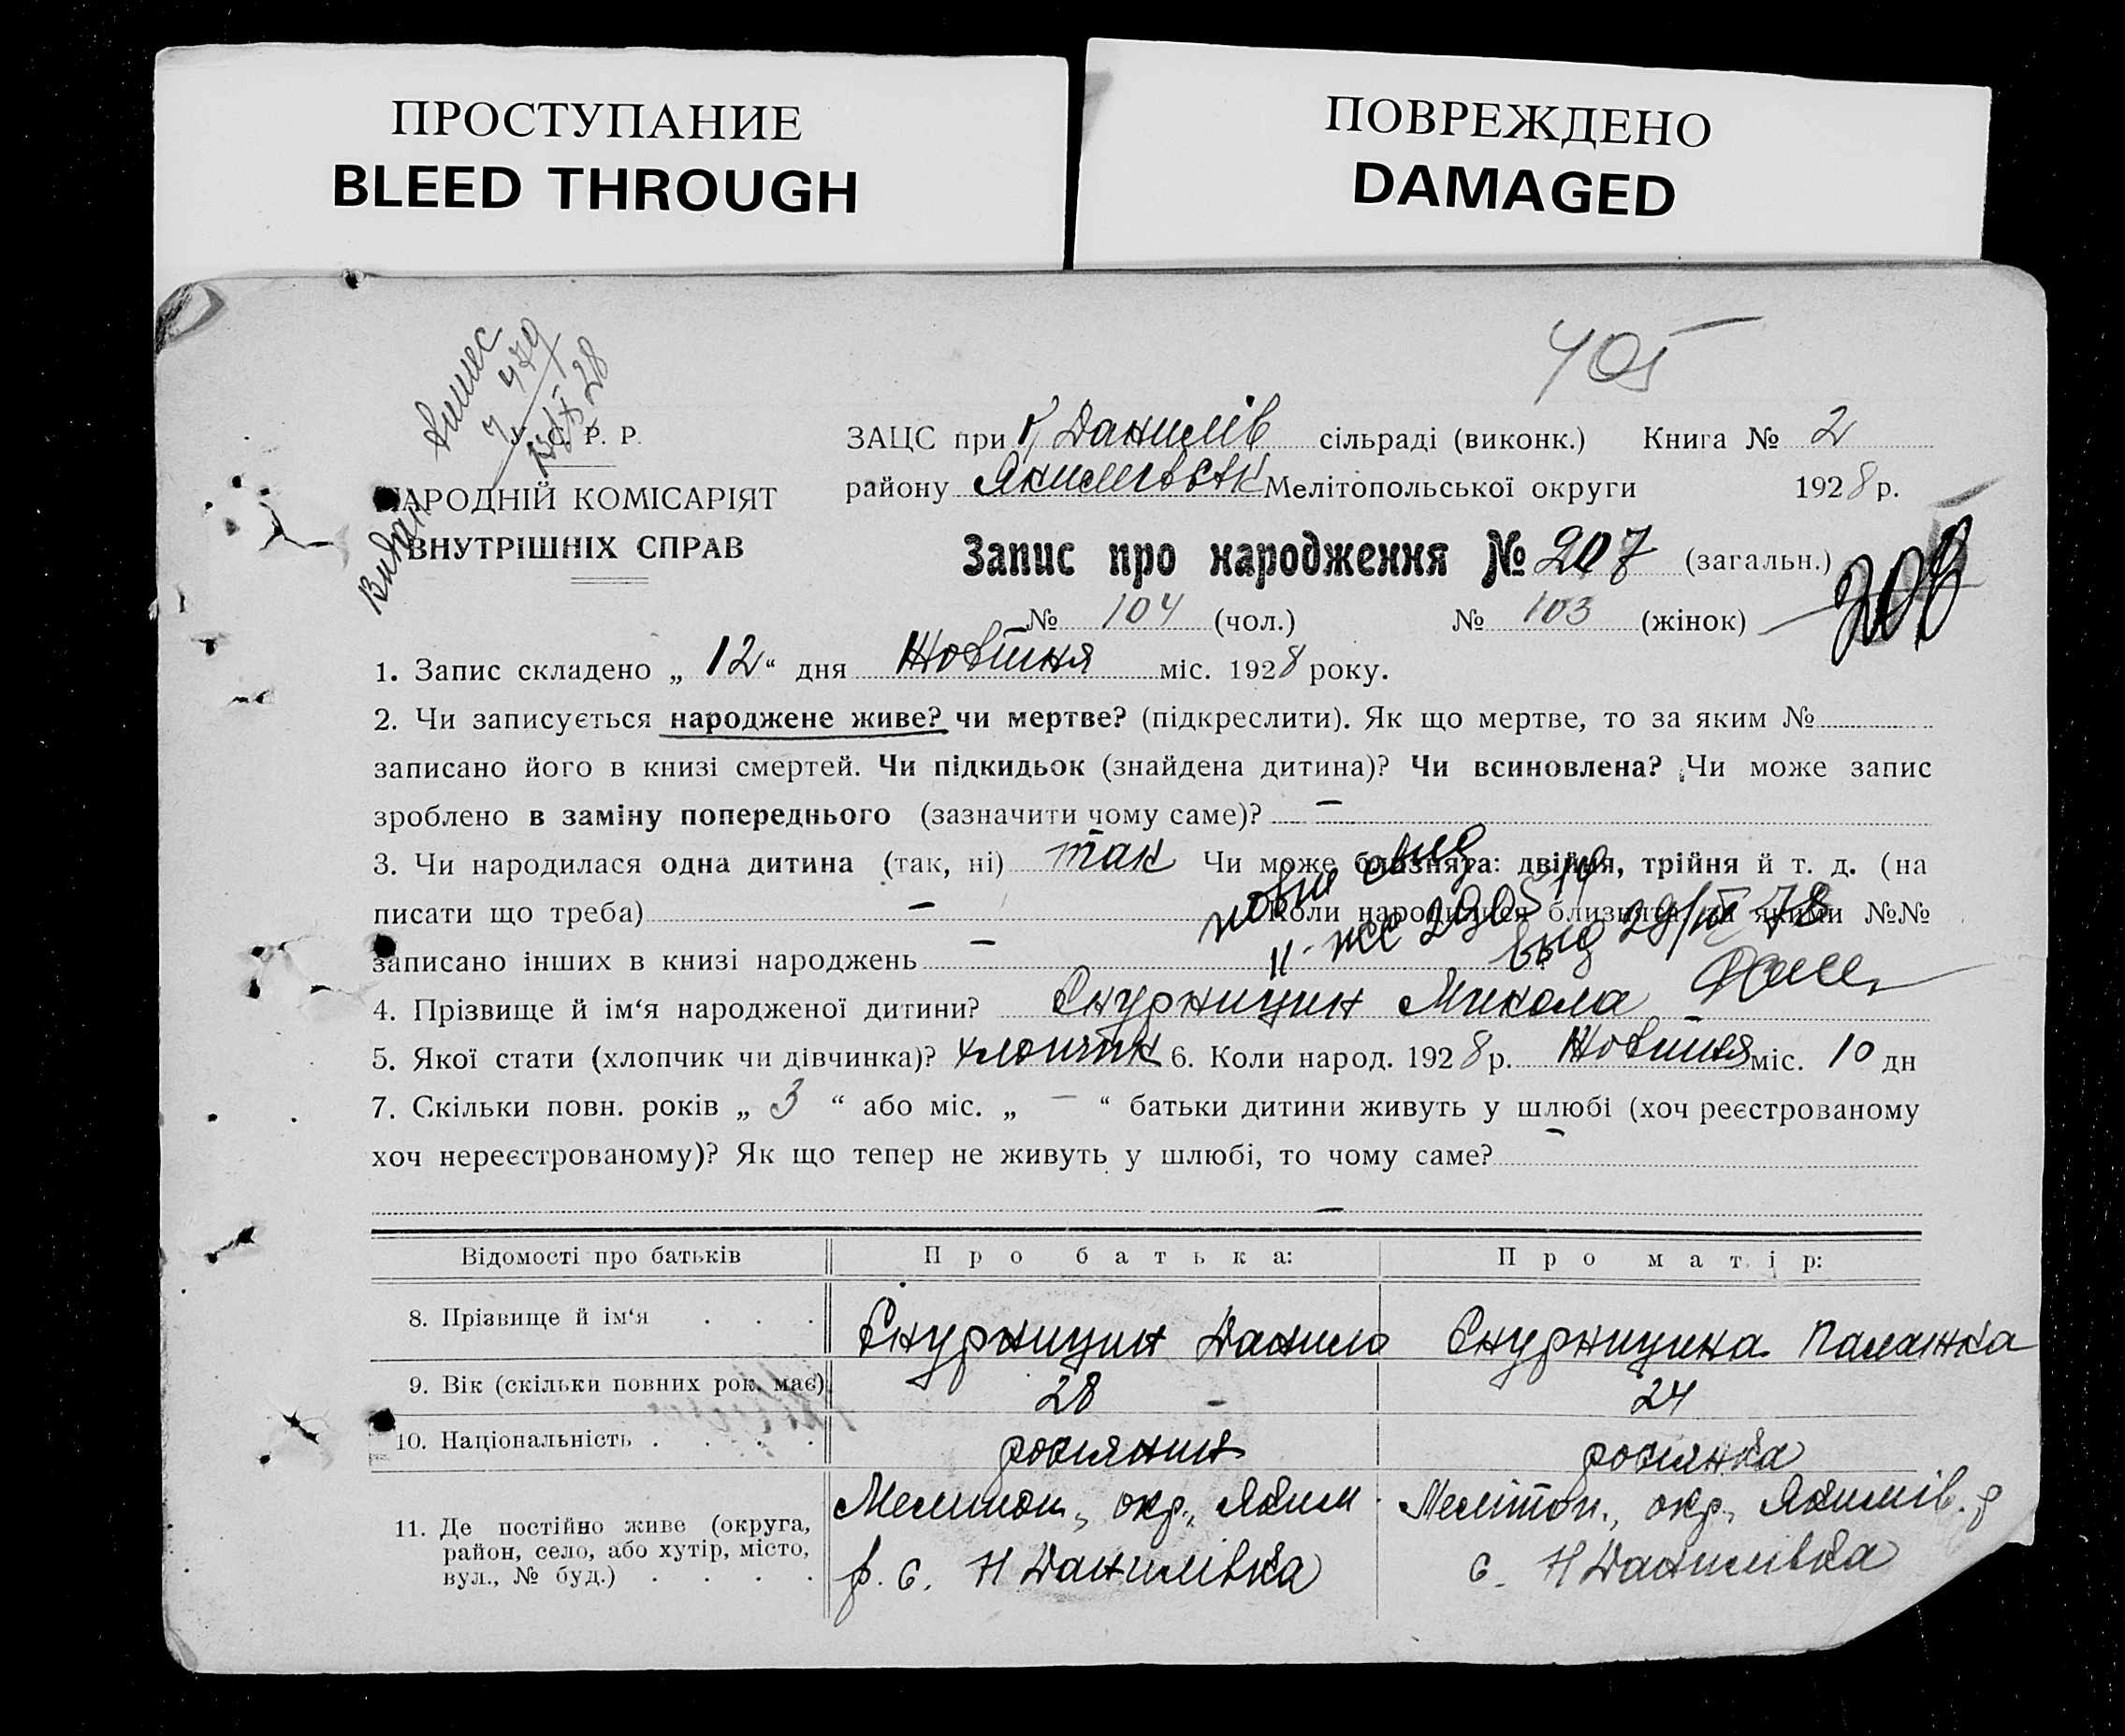 ПРОСТУПАНИЕ
BLEED THROUGH
ПОВРЕЖДЕНО
DAMAGED
405
Видан Випис
№ 479
28
С. Р. Р.
НАРОДНІЙ КОМІСАРІЯТ
ВНУТРІШНІХ СПРАВ
ЗАЦС при Данилів сільраді (виконк.) Книга № 2
району Якимговськ Мелітопольської округи 1928 р.
Запис про народження № 207 (загальн.)
208
№ 104 (чол.) № 103 (жінок)
1. Запис складено „ 12 “ дня Жовтня міс. 1928 року.
2. Чи записується народжене живе? чи мертве? (підкреслити). Як що мертве, то за яким №
записано його в книзі смертей. Чи підкидьок (знайдена дитина)? Чи всиновлена? Чи може запис
зроблено в заміну попереднього (зазначити чому саме)? —
3. Чи народилася одна дитина (так, ні) так Чи може близнята: двійня, трійня й т. д. (на
писати що треба) — Коли народилися близнята, за якими №№
записано інших в книзі народжень —
4. Прізвище й ім‘я народженої дитини? Снурницин Микола
5. Якої стати (хлопчик чи дівчинка)? хлопчик 6. Коли народ. 1928 р. Жовтня міс. 10 дн
7. Скільки повн. років „ 3 “ або міс. „ — “ батьки дитини живуть у шлюбі (хоч реєстрованому
хоч нереєстрованому)? Як що тепер не живуть у шлюбі, то чому саме? —
—
Відомості про батьків Про батька: Про матір:
8. Прізвище й ім‘я . . . Снурницин Данило Снурницина Палажка
9. Вік (скільки повних рок. має) 28 - 24
10. Національність . . . . росиянин росиянка
11. Де постійно живе (округа, район, село, або хутір, місто, вул., № буд.) . . . .
Мелитоп., окр., Яким.
р. с. Н Данилівка
Мелітоп., окр., Якимів. р
с. Н Данилівка